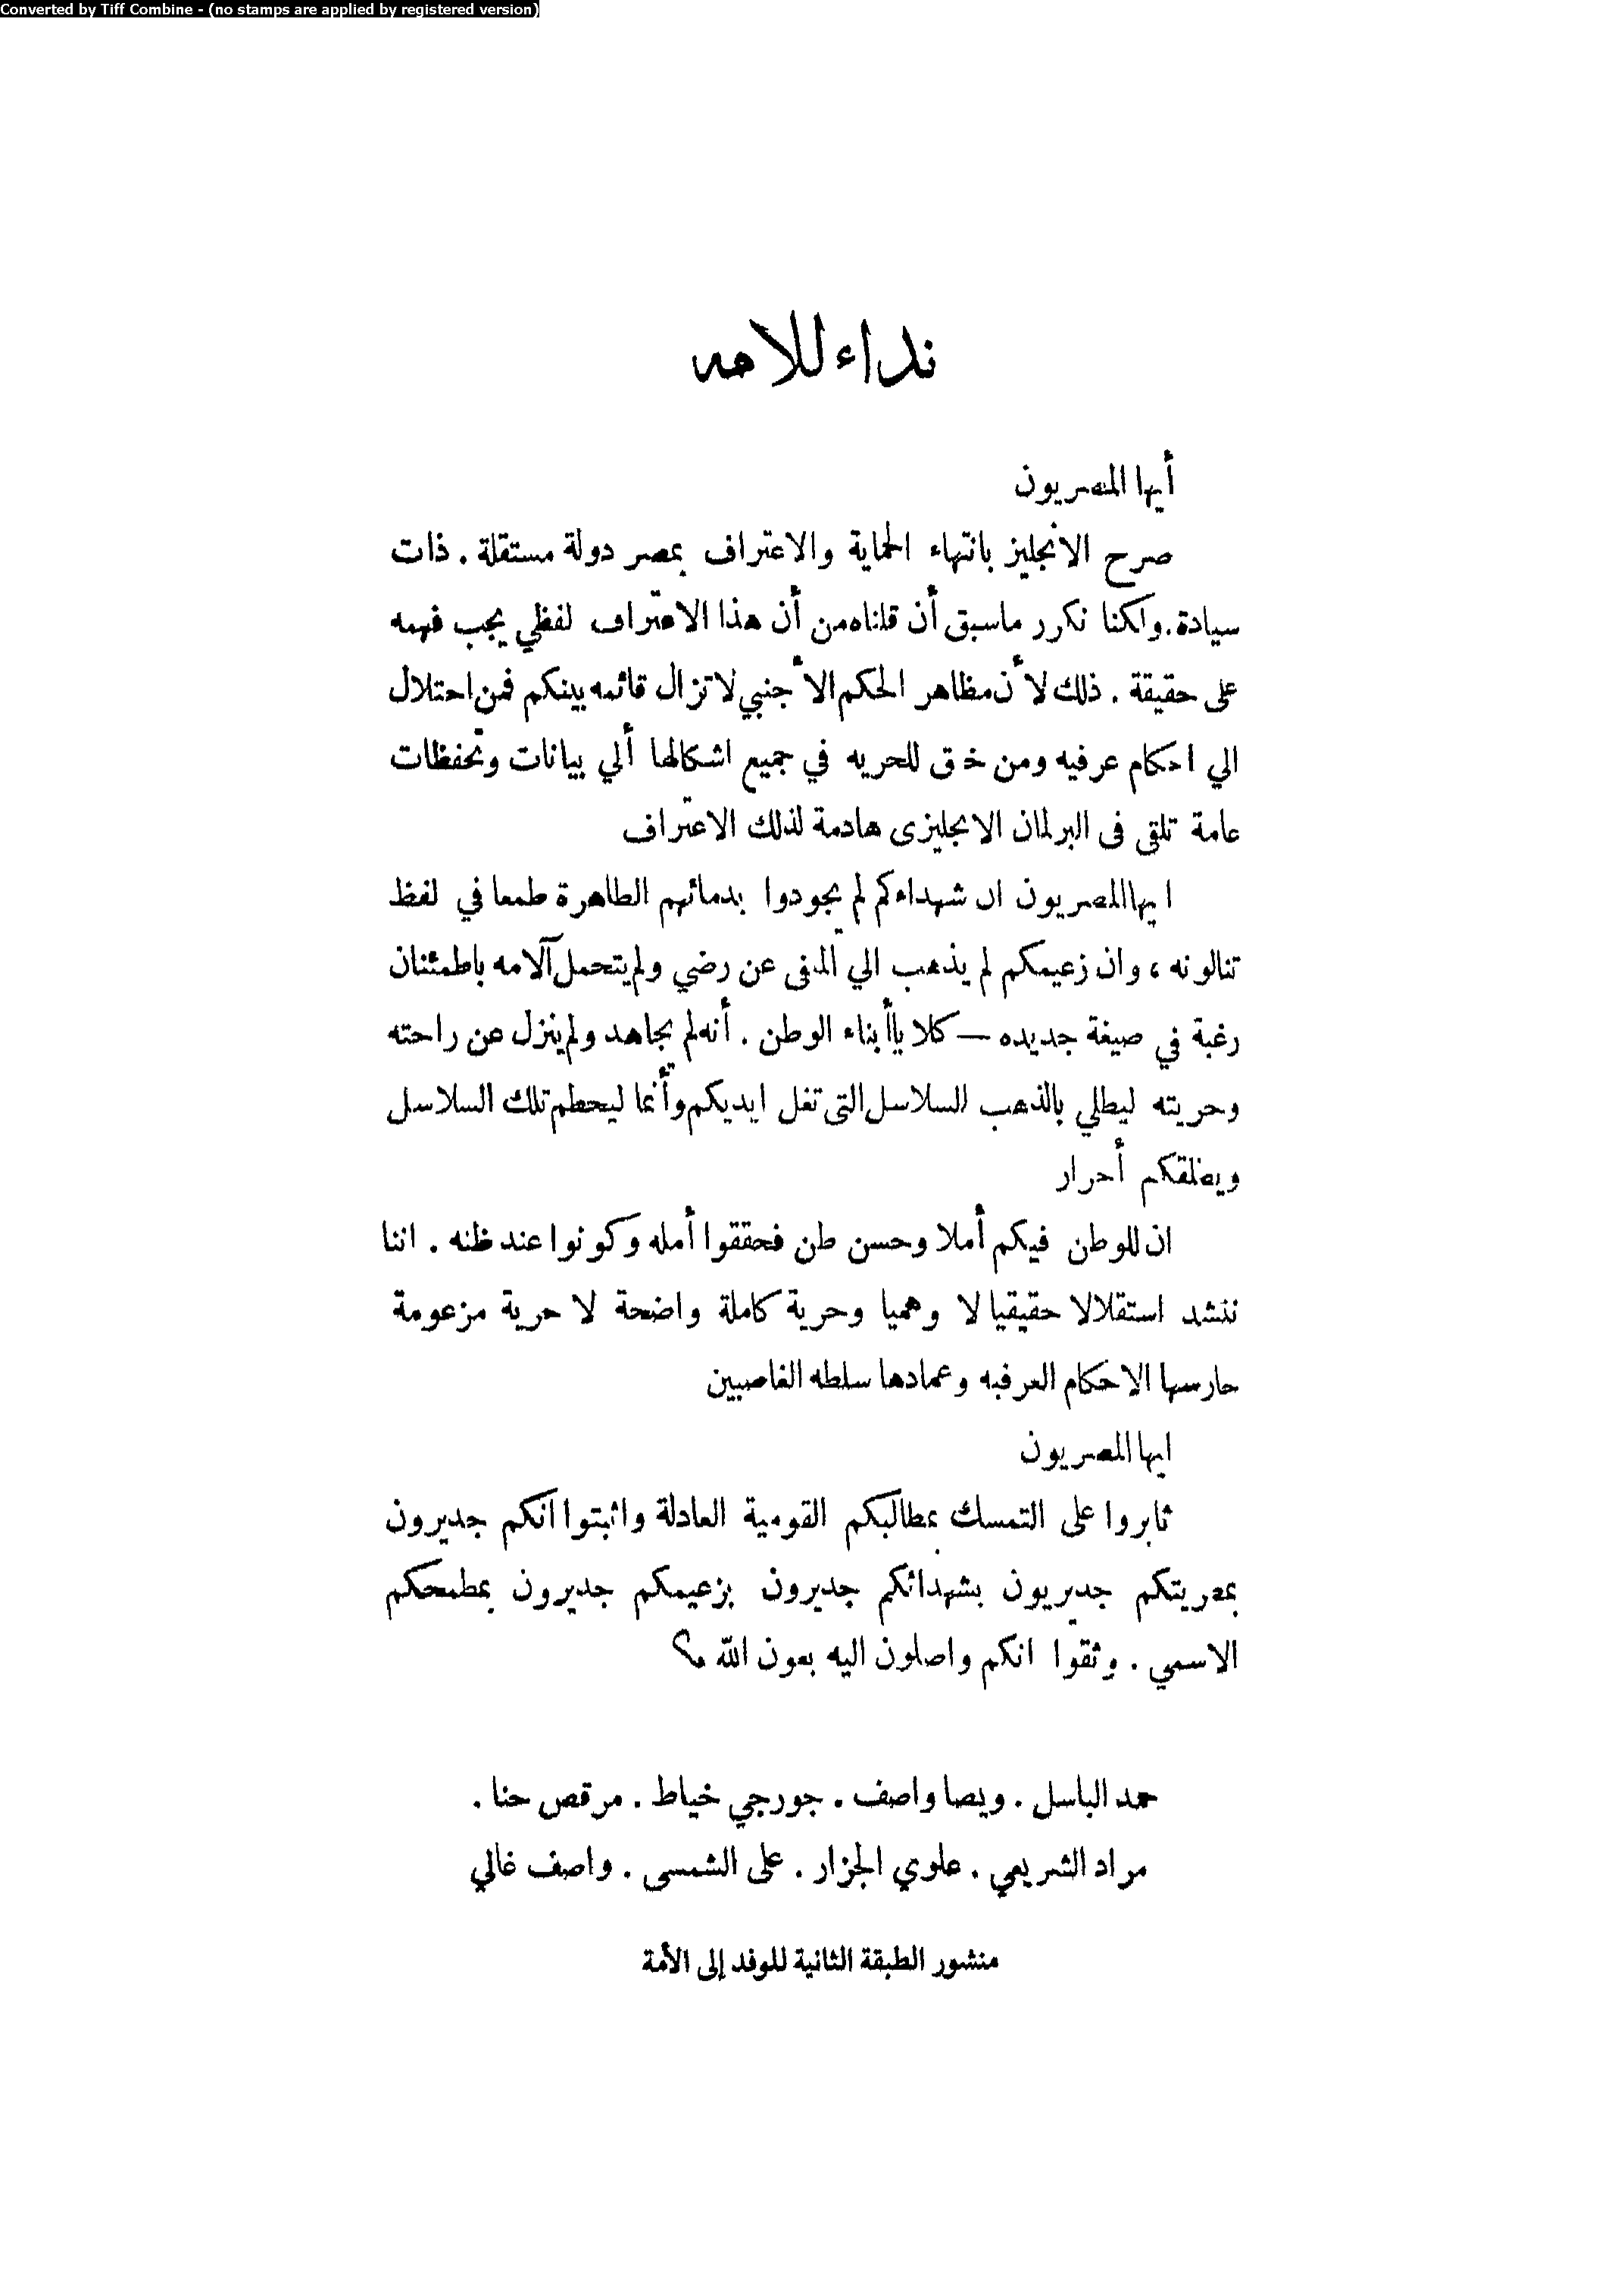 Converted by Tiff Combine - (no stamps are applied by registered version)
نداء للامه
أيها المصريون
صرح الانجليز بانتهاء الحماية والاعتراف بمصر دولة مستقلة . ذات
سيادة . ولكنا نكرر ماسبق أن قلناه من أن هذا الاعتراف لفظي يجب فهمه
على حقيقة . ذلك لأن مظاهر الحكم الأجنبي لا تزال قائمه بينكم فمن احتلال
الي احكام عرفيه ومن خنق للحريه في جميع اشكالها ألي بيانات وتحفظات
عامة تلقى فى البرلمان الانجليزى هادمة لذلك الاعتراف
ايها المصريون ان شهداءكم لم يجودوا بدمائهم الطاهرة طمعا في لفظ
تنالونه ، وان زعيمكم لم يذهب الي المنفى عن رضي ولم يتحمل آلامه باطمئنان
رغبة في صيغة جديده — كلا ياأبناء الوطن . أنه لم يجاهد ولم ينزل عن راحته
وحريته ليطلي بالذهب السلاسل التى تغل ايديكم وأنما ليحطم تلك السلاسل
ويطلقكم أحرار
ان للوطن فيكم أملا وحسن طن فحققوا أمله وكونوا عند ظنه . اننا
ننشد استقلالا حقيقيا لا وهميا وحرية كاملة واضحة لا حرية مزعومة
حارسها الاحكام العرفيه وعمادها سلطه الغاصبين
ايها المصريون
ثابروا على التمسك بمطالبكم القومية العادلة واثبتوا انكم جديرون
بمصريتكم جديريون بشهدائكم جديرون بزعيمكم جديرون بمطمحكم
الاسمي . وثقوا انكم واصلون اليه بعون الله
حمد الباسل . ويصا واصف . جورجي خياط . مرقص حنا .
مراد الشريعي . علوي الجزار . على الشمسى . واصف غالي
منشور الطبقة الثانية للوفد إلى الأمة